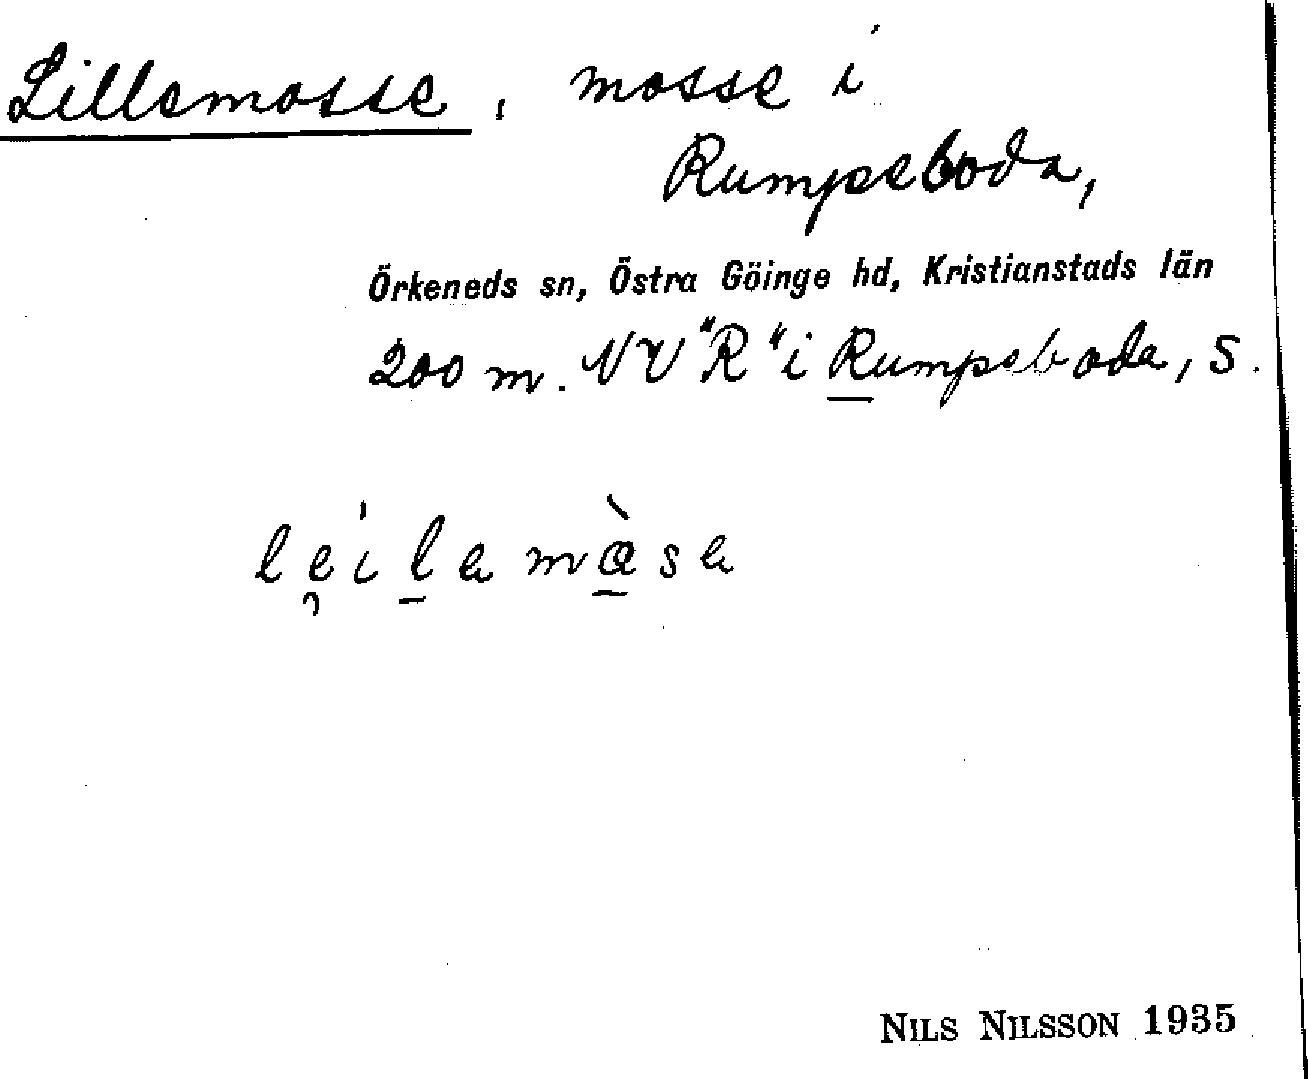 Lillemosse, mosse i
Rumpeboda,
Örkeneds sn, Östra Göinge hd, Kristianstads län
200 m. NV "R" i Rumpeboda, S.
leilamàsa
NILS NILSSON 1935